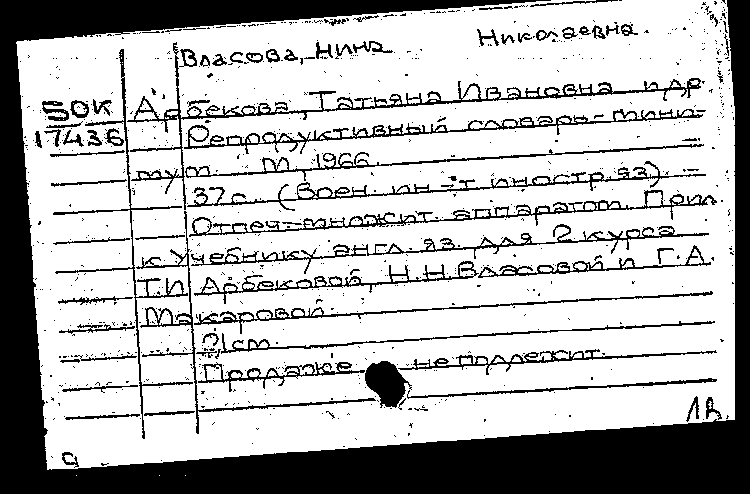 Власова, Нина Николаевна.
50К Арбекова, Татьяна Ивановна и др.
17436 Репродуктивный словарь-мини-
мум. М., 1966.
37с. (Воен. ин-т иностр. яз). –
Отпеч. множит. аппаратом. Прил.
к Учебнику англ. яз. для 2 курса
Т.И. Арбековой, Н.Н. Власовой и Г.А.
Макаровой.
21см.
Продаже не подлежит.
1в